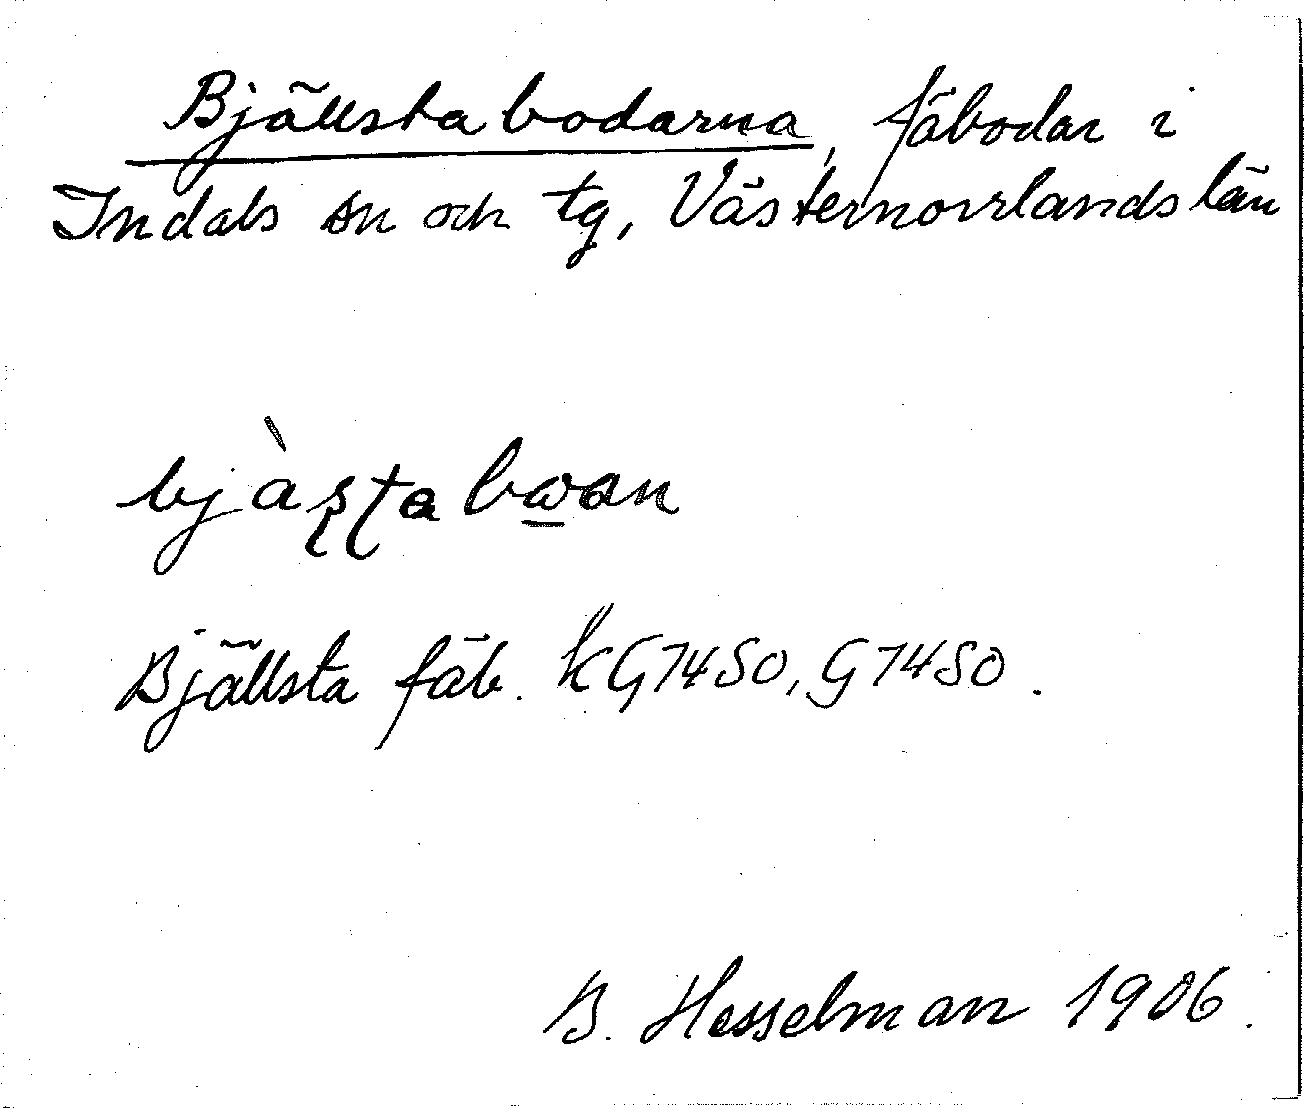 Bjällstabodarna, fäbodar i
Indals sn och tg, Västernorrlands län
bjàʂʈa bωan
Bjällsta fäb. KG7450, G7450.
B. Hesselman 1906.